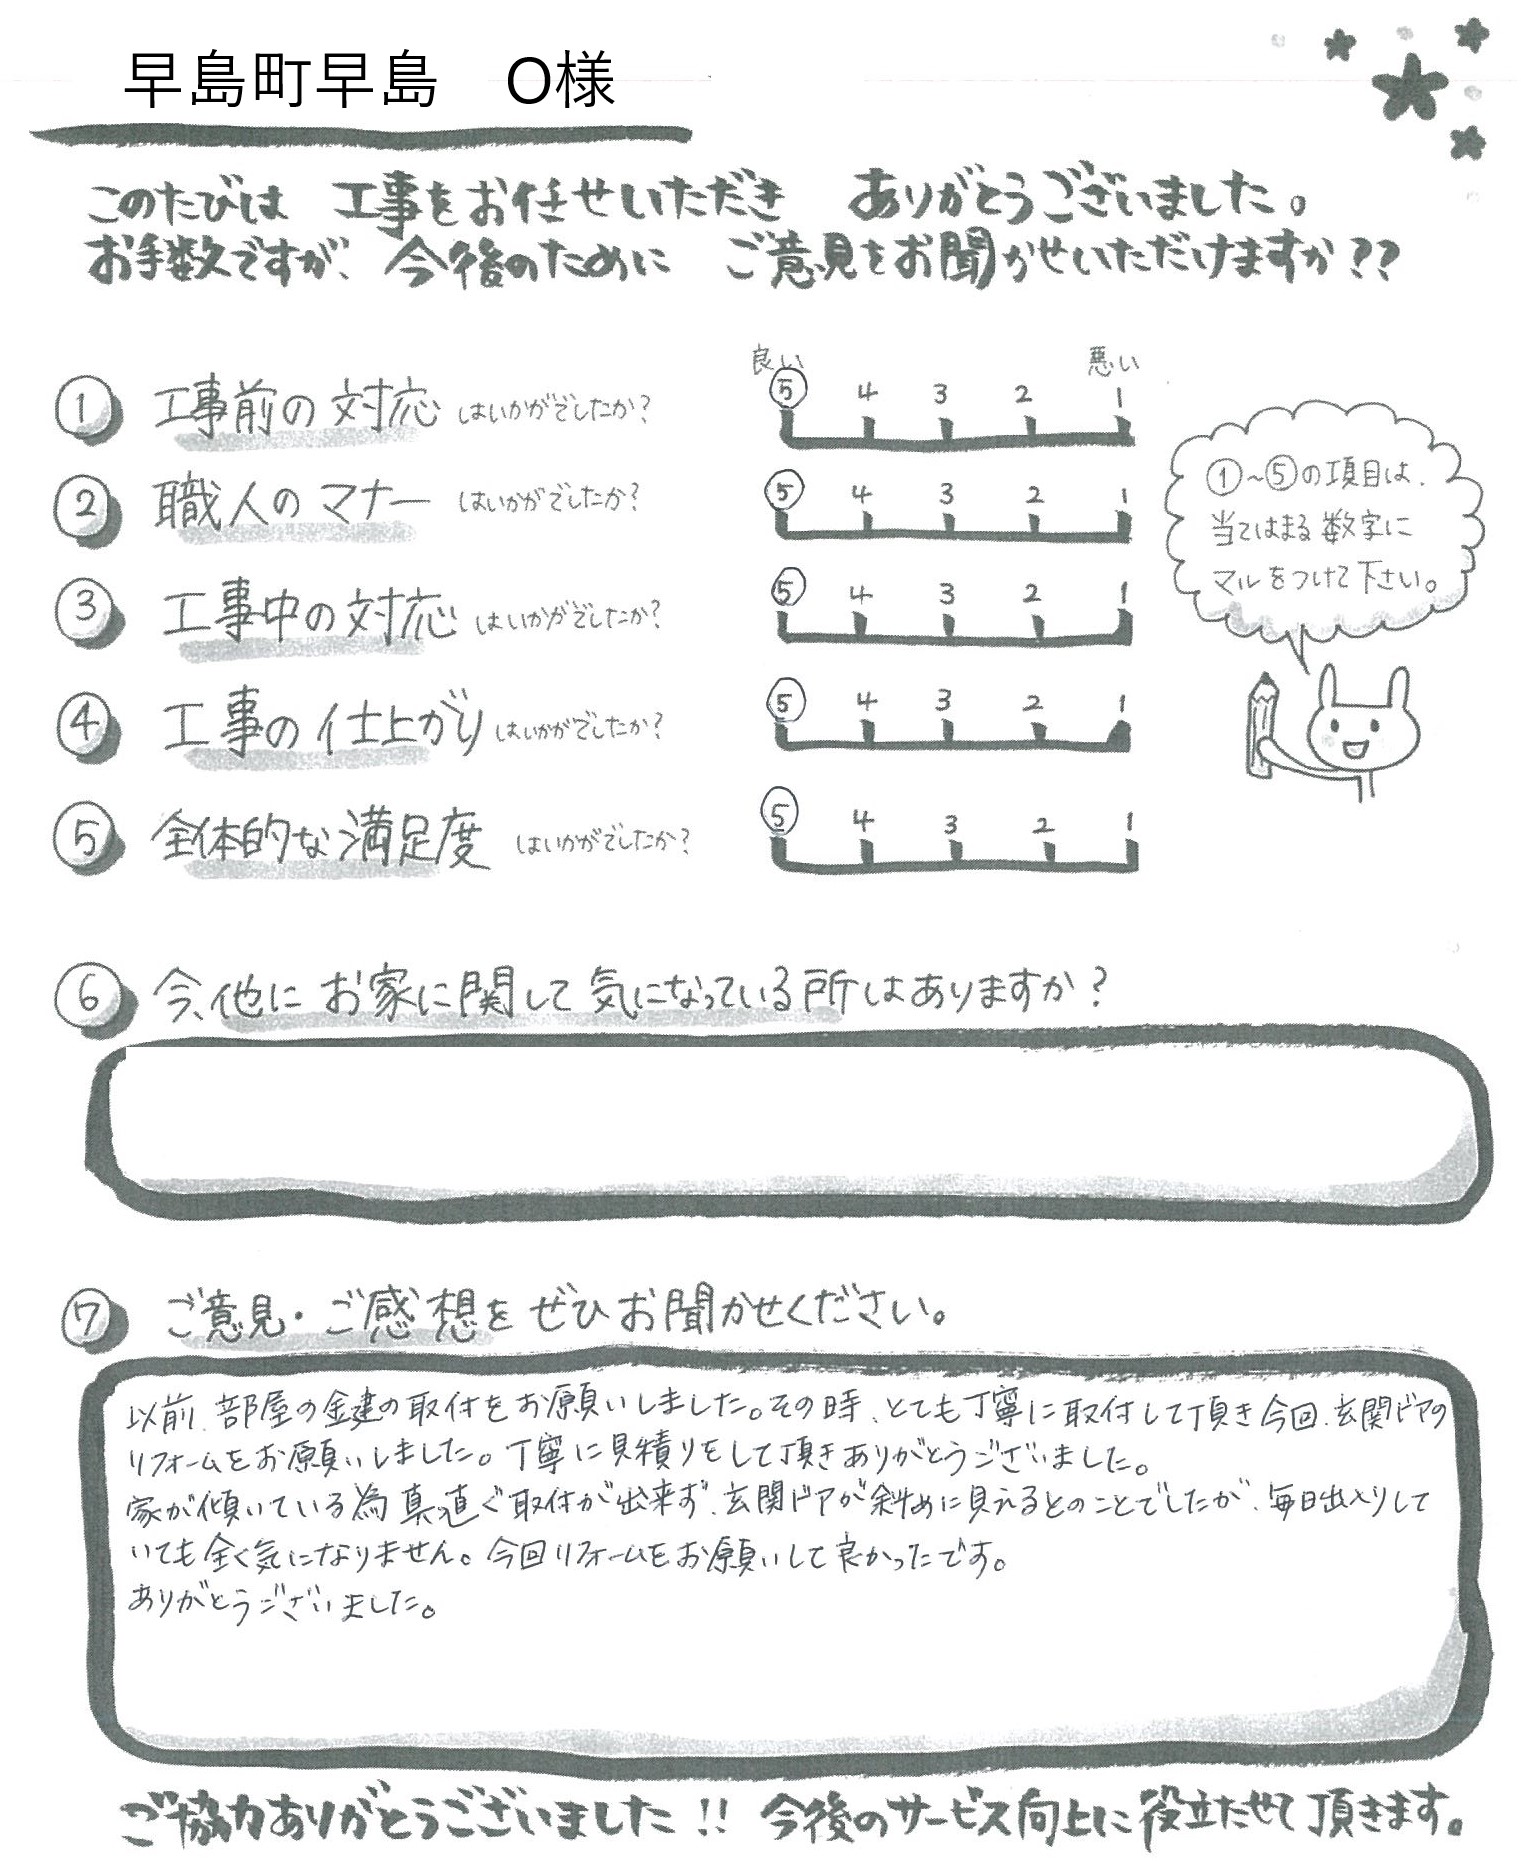 早島町早島　O様
このたびは 工事をお任せいただき ありがとうございました。
お手数ですが、今後のために ご意見をお聞かせいただけますか??
良い 悪い
① 工事前の対応 はいかがでしたか? 5 4 3 2 1
② 職人のマナー はいかがでしたか? 5 4 3 2 1
③ 工事中の対応 はいかがでしたか? 5 4 3 2 1
④ 工事の仕上がり はいかがでしたか? 5 4 3 2 1
⑤ 全体的な満足度 はいかがでしたか? 5 4 3 2 1
①~⑤の項目は、
当てはまる数字に
マルをつけて下さい。
⑥ 今、他に お家に関して 気になっている所はありますか?
⑦ ご意見・ご感想を ぜひ お聞かせください。
以前、部屋の鍵の取付をお願いしました。その時、とても丁寧に取付して頂き今回、玄関ドアの
リフォームをお願いしました。丁寧に見積りをして頂きありがとうございました。
家が傾いている為 真っ直ぐ取付が出来ず、玄関ドアが斜めに見えるとのことでしたが、毎日出入りして
いても全く気になりません。今回リフォームをお願いして良かったです。
ありがとうございました。
ご協力ありがとうございました!! 今後のサービス向上に役立たせて頂きます。